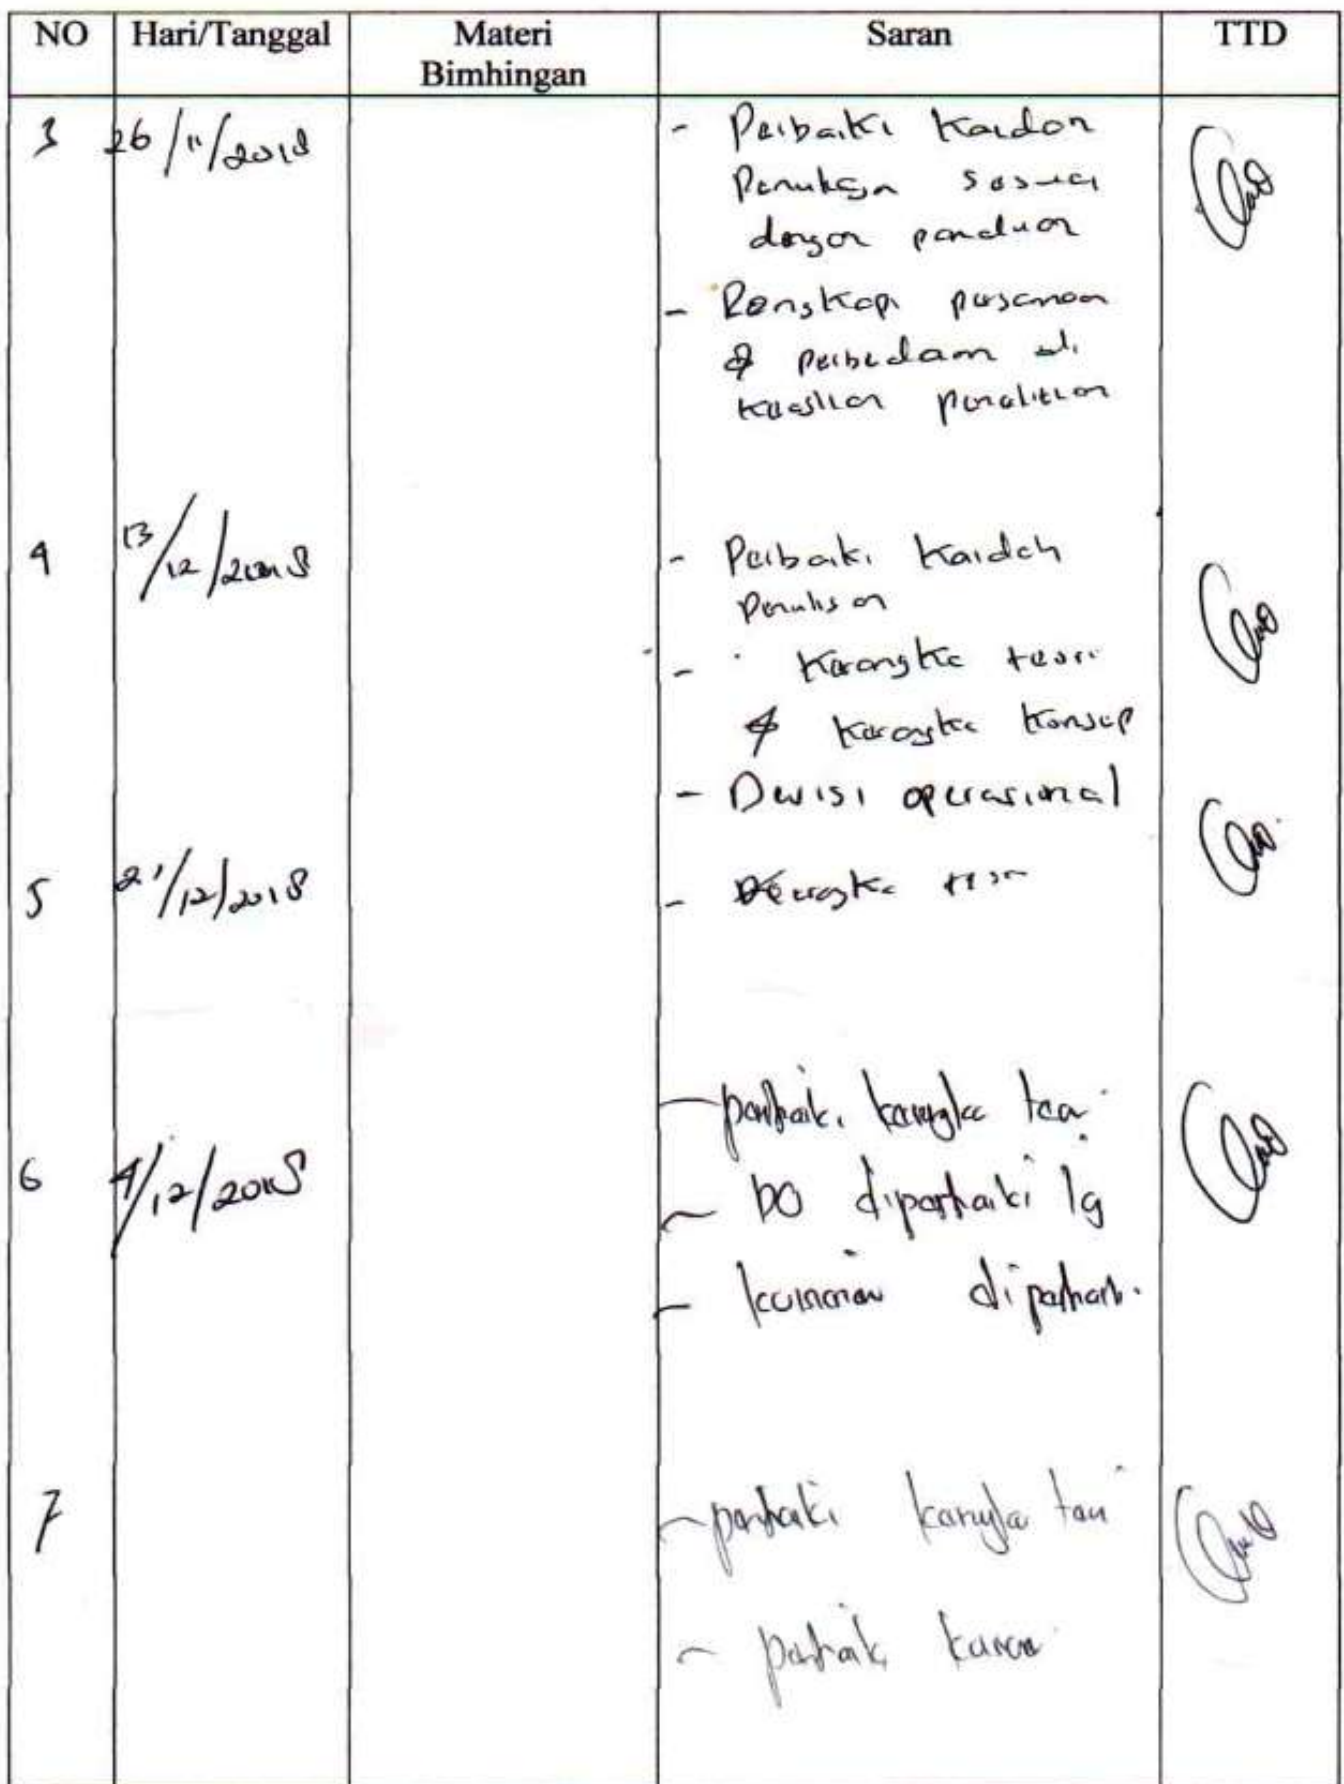 NO Hari/Tanggal Materi Bimhingan Saran TTD
3 26/11/2018 - Perbaiki Kaidah
Penulisan sesuai
dengan panduan
- Lengkapi persamaan
& perbedaan di
keaslian penelitian
4 13/12/2018 - Perbaiki Kaidah
Penulisan
- Kerangka teori
& Kerangka Konsep
- Devisi operasional
5 21/12/2018 - Kerangka teori
6 /12/2018 - perbaiki kerangka teori
- DO diperbaiki lg
- diperbaiki
7 - perbaiki kerangka teori
- perbaiki